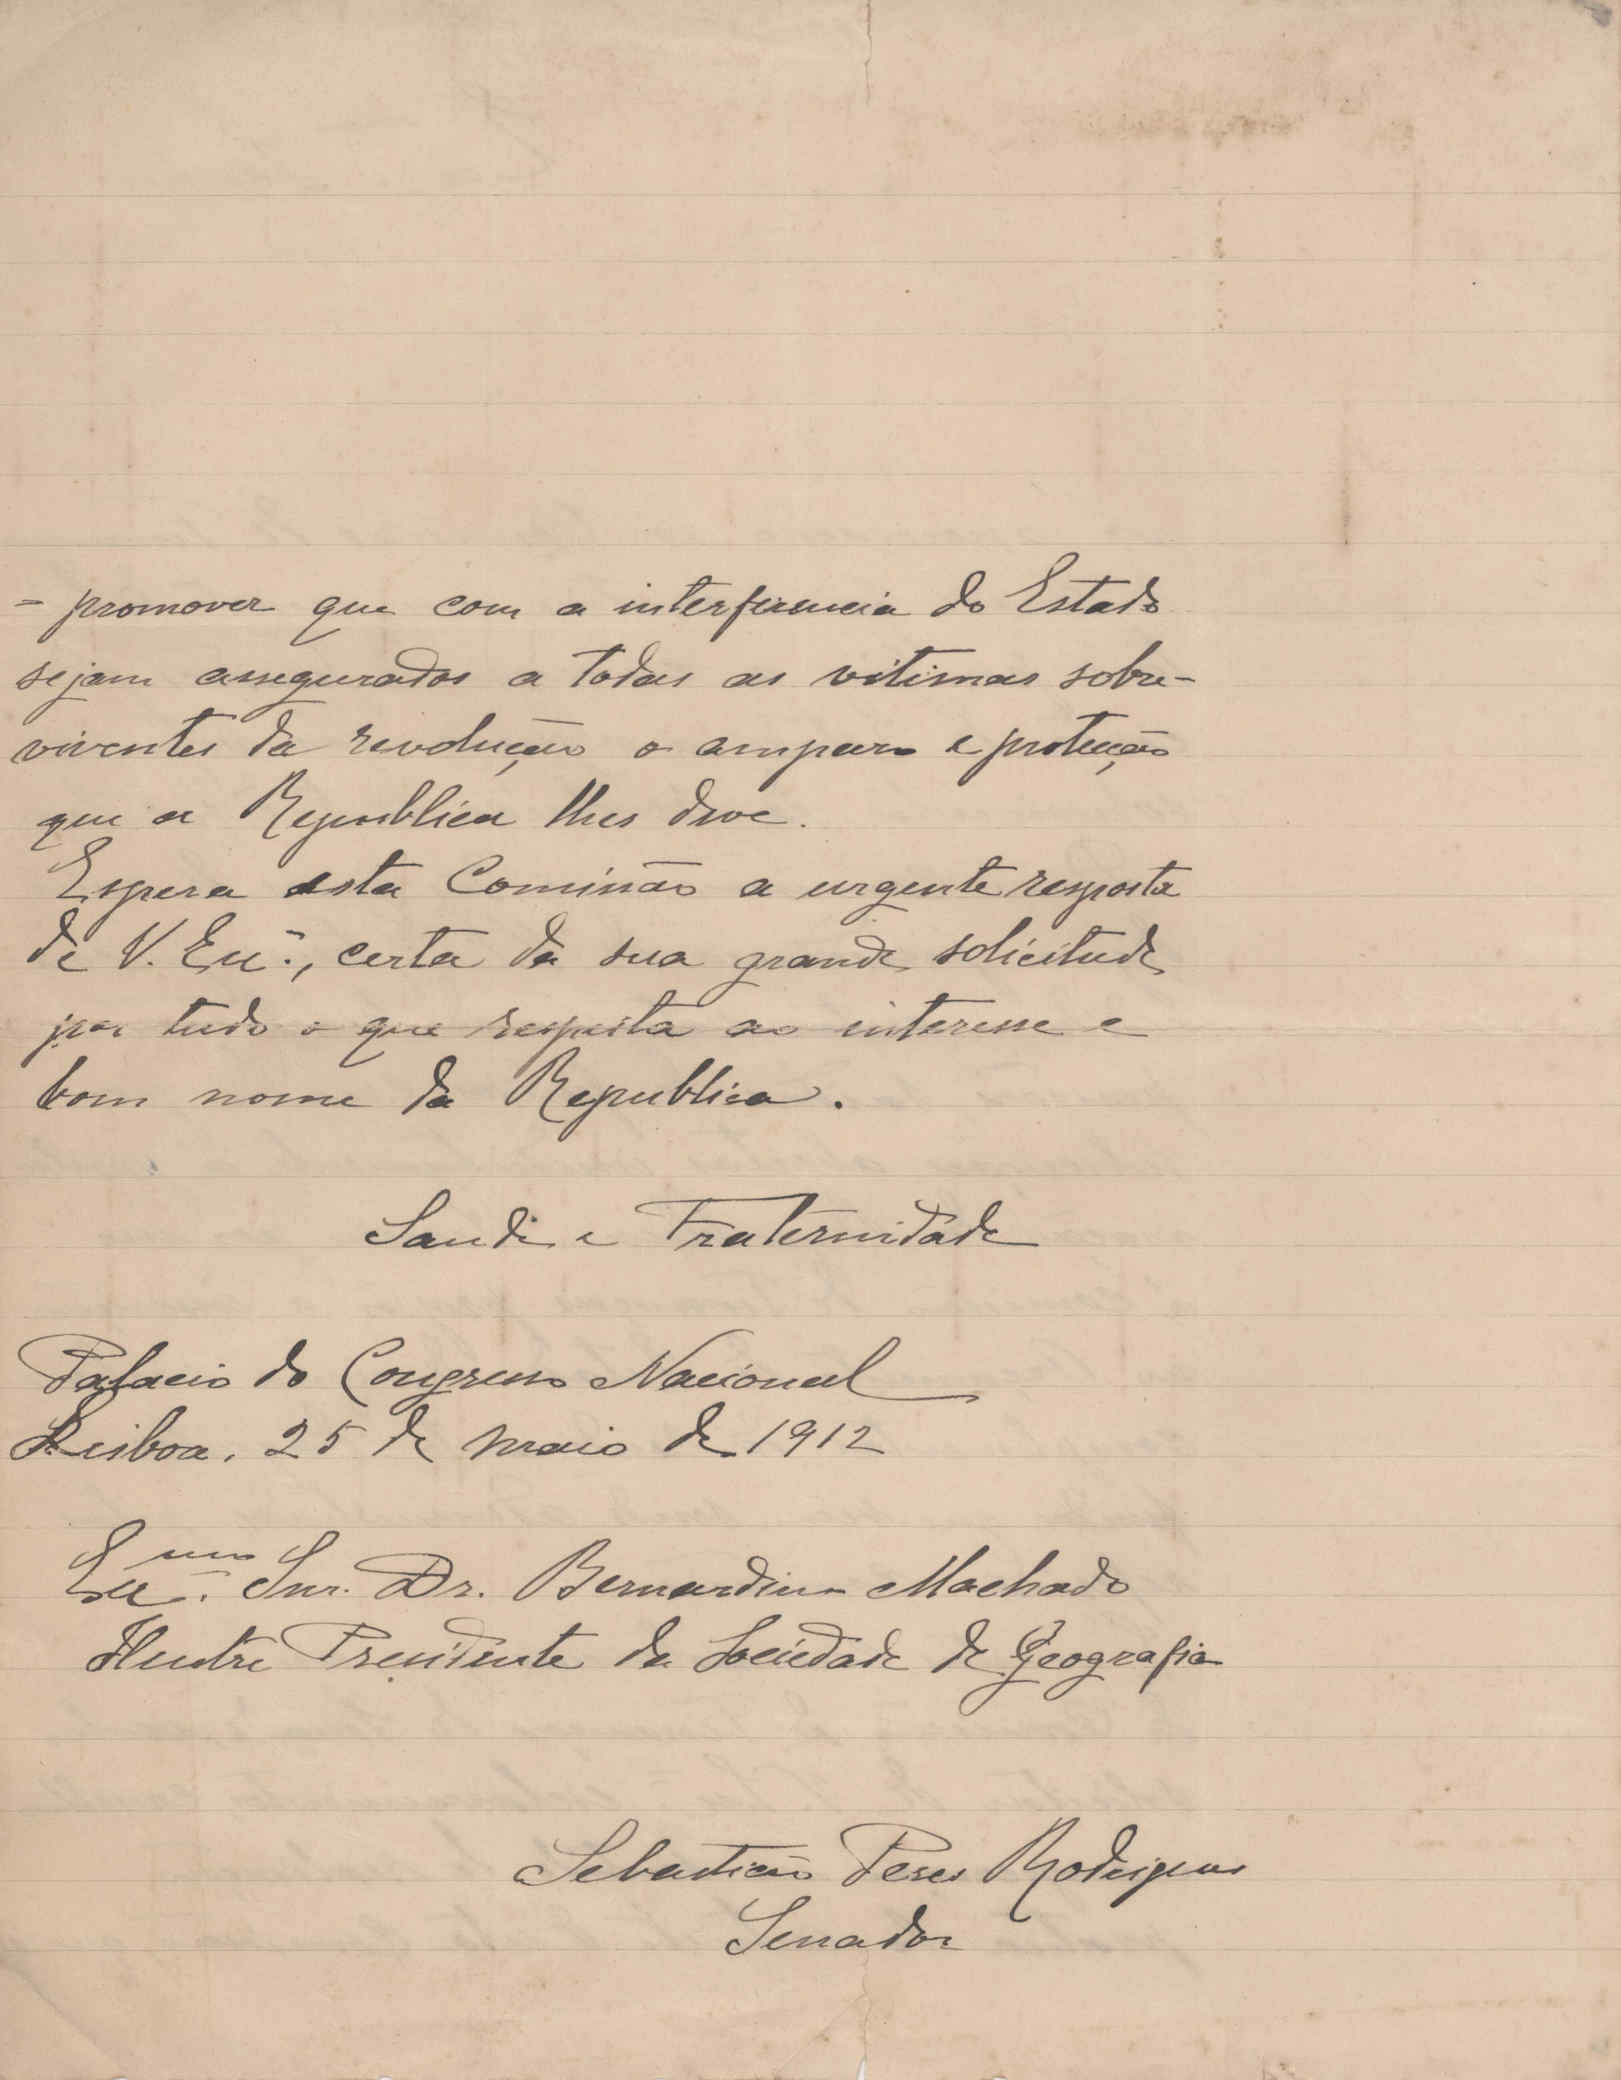 = promover que com a interferencia do Estado
sejam assegurados a todas as vitimas sobre-
viventes da revolução o amparo e protecção
que a Republica lhes deve.
Espera esta Comissão a urgente resposta
de V. Exª., certa da sua grande solicitude
por tudo o que respeita ao interesse e
bom nome da Republica.
Saude e Fraternidade
Palacio do Congresso Nacional
Lisboa, 25 de Maio de 1912
Exmo. Snr. Dr. Bernardino Machado
Ilustre Presidente da Sociedade de Geografia
Sebastião Peres Rodrigues
Senador